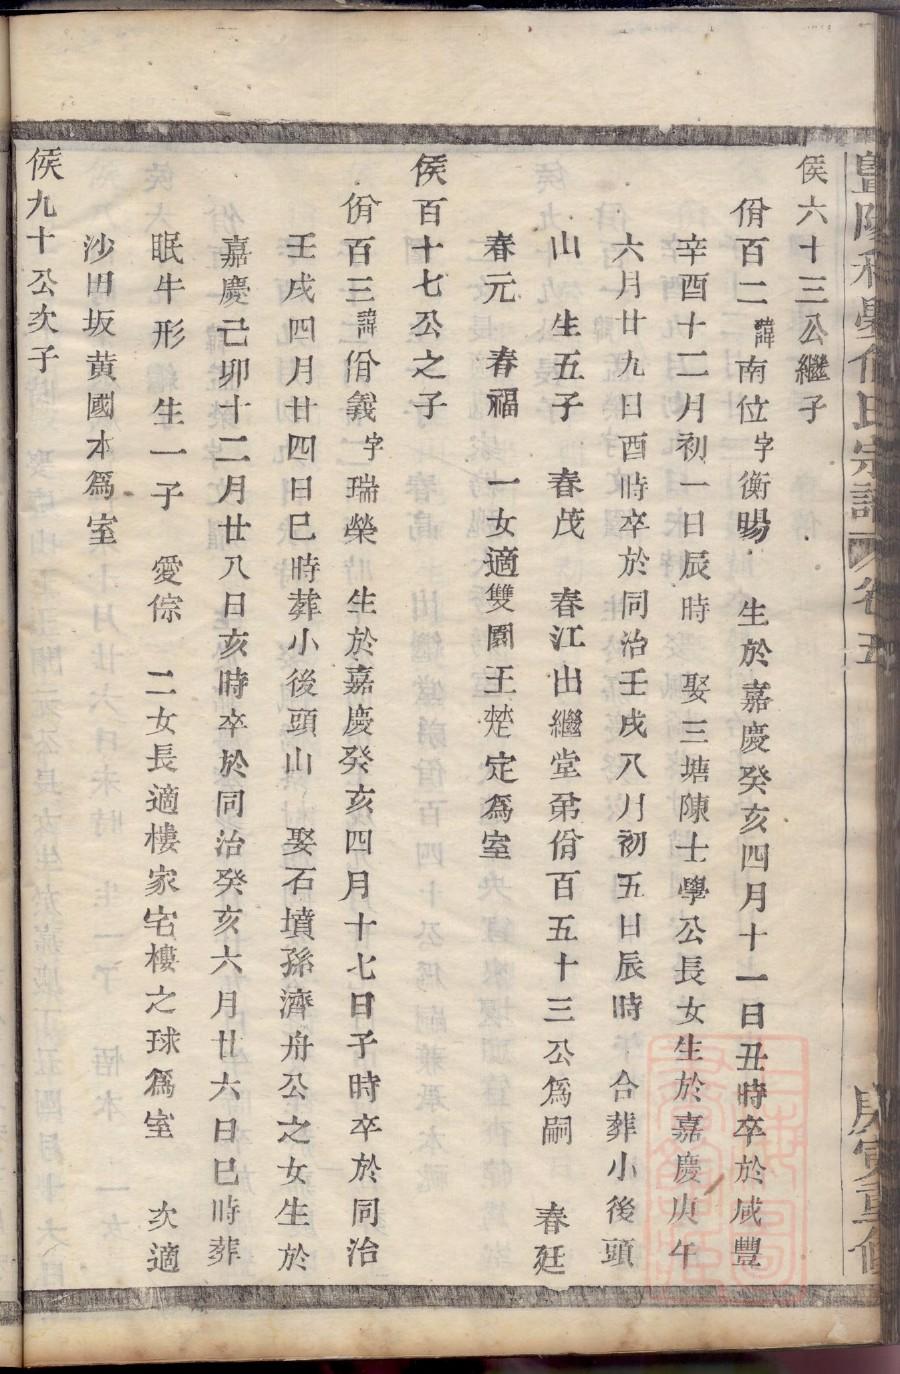 侯六十三公繼子
佾百二諱南位字衡暘 生於嘉慶癸亥四月十一日丑時卒於咸豐
辛酉十二月初一日辰時 娶三塘陳士學公長女生於嘉慶庚午
六月廿九日酉時卒於同治壬戌八月初五日辰時 合葬小後頭
山 生五子 春茂 春江出繼堂弟佾百五十三公爲嗣 春廷
春元 春福 一女適雙園王椘定爲室
侯百十七公之子
佾百三諱佾義字瑞榮 生於嘉慶癸亥四月十七日子時卒於同治
壬戌四月廿四日巳時葬小後頭山 娶石墳孫濟舟公之女生於
嘉慶己卯十二月廿八日亥時卒於同治癸亥六月廿六日巳時葬
眠牛形 生一子 愛倧 二女長適樓家宅樓之球爲室 次適
沙田坂黄國本爲室
侯九十公次子
宗譜 卷五
庚寅重修